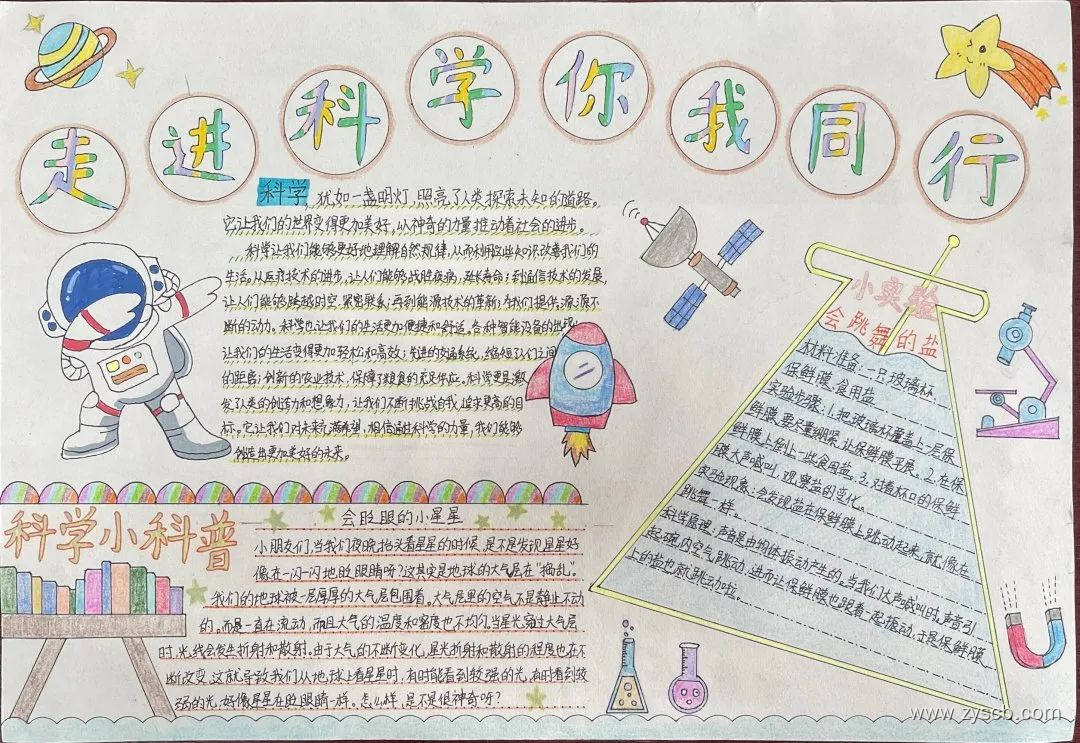 走进科学你我同行
科学,犹如一盏明灯,照亮了人类探索未知的道路。
它让我们的世界变得更加美好,以神奇的力量推动着社会的进步。
科学让我们能够更好地理解自然规律,从而利用这些知识改善我们的
生活。从医疗技术的进步,让人们能够战胜疾病,延长寿命;到通信技术的发展,
让人们能够跨越时空,紧密联系;再到能源技术的革新,为我们提供源源不
断的动力。科学也让我们的生活更加便捷和舒适。各种智能设备的出现,
让我们的生活变得更加轻松和高效;先进的交通系统,缩短了人们之间
的距离;创新的农业技术,保障了粮食的充足供应。科学更是激
发了人类的创造力和想象力,让我们不断挑战自我,追求更高的目
标。它让我们对未来充满希望,相信通过科学的力量,我们能够
创造出更加美好的未来。
小实验
会跳舞的盐
材料准备:一只玻璃杯
保鲜膜、食用盐
实验步骤:1.把玻璃杯覆盖上一层保
鲜膜,要尽量绷紧,让保鲜膜平展。2.在保
鲜膜上倒上一些食用盐。3.对着杯口的保鲜
膜大声喊叫,观察盐的变化。
实验现象:会发现盐在保鲜膜上跳动起来,就像在
跳舞一样。
科学原理:声音是由物体振动产生的。当我们大声喊叫时,声音引
起碗内空气跳动,进而让保鲜膜也跟着一起振动,于是保鲜膜
上的盐也就跳动啦。
科学小科普
会眨眼的小星星
小朋友们,当我们夜晚抬头看星星的时候,是不是发现星星好
像在一闪一闪地眨眼睛呀?这其实是地球的大气层在“捣乱”。
我们的地球被一层厚厚的大气层包围着。大气层里的空气不是静止不动
的。而是一直在流动,而且大气的温度和密度也不均匀。当星光穿过大气层
时,光线会发生折射和散射。由于大气的不断变化,星光折射和散射的程度也在不
断改变。这就导致我们从地球上看星星时,有时能看到较强的光,有时看到较
弱的光,好像星星在眨眼睛一样。怎么样,是不是很神奇呀?
www.zyscb.com